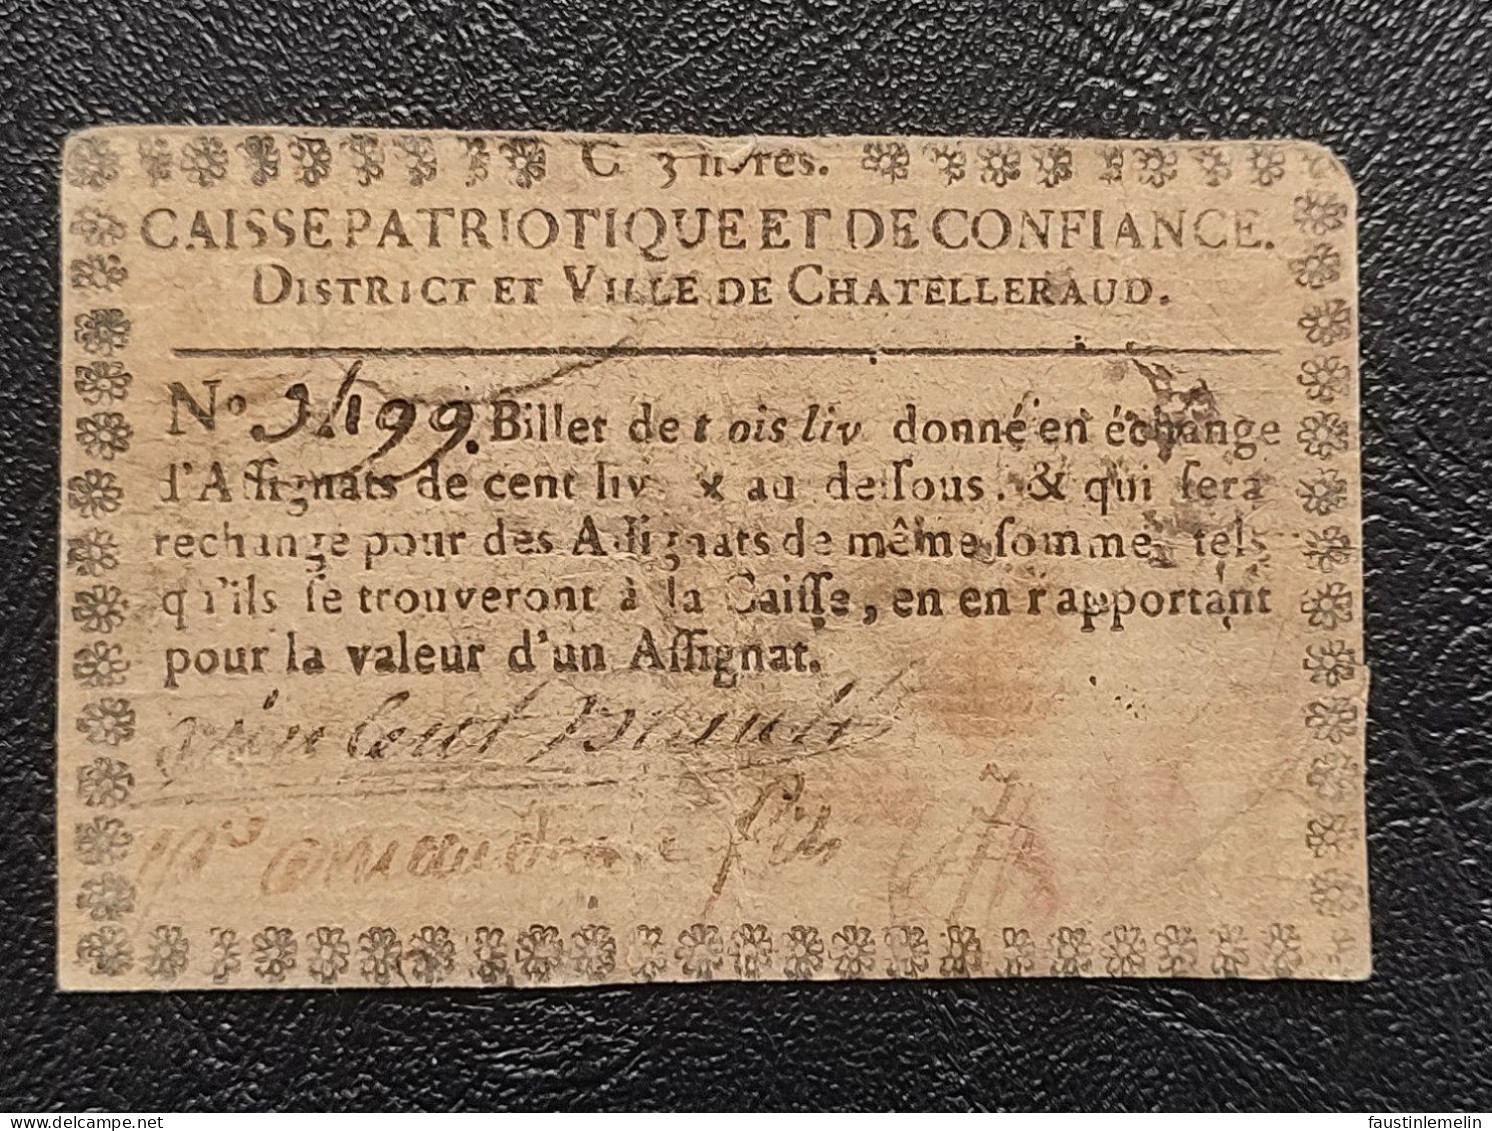 C 3 livres.
CAISSE PATRIOTIQUE ET DE CONFIANCE.
DISTRICT ET VILLE DE CHATELLERAUD.
N° Billet de t ois liv donné en échange
d'Assignats de cent liv & au dessous, & qui sera
rechange pour des Assignats de même somme, tels
qu'ils se trouveront à la Caisse, en en rapportant
pour la valeur d'un Assignat.
delcampe.net
faustinlemelin